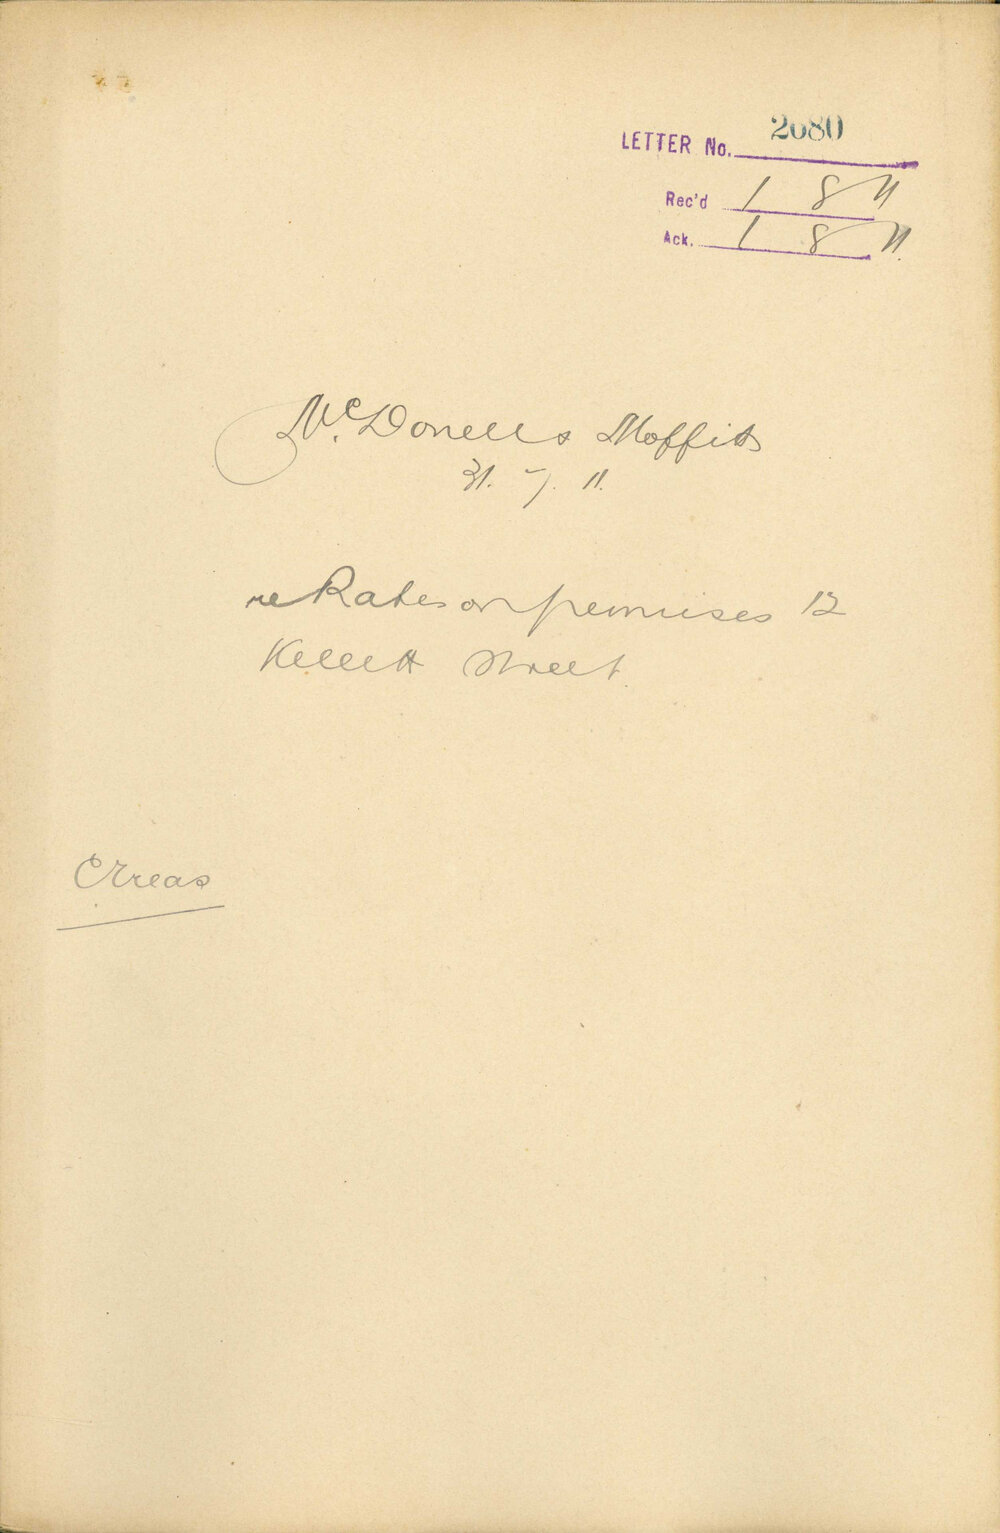 LETTER No. 2680
Rec'd 1 8 11
Ack. 1 8 11.
McDonells Moffitt
31. 7. 11.
re Rates on premises 12
Kellett Street